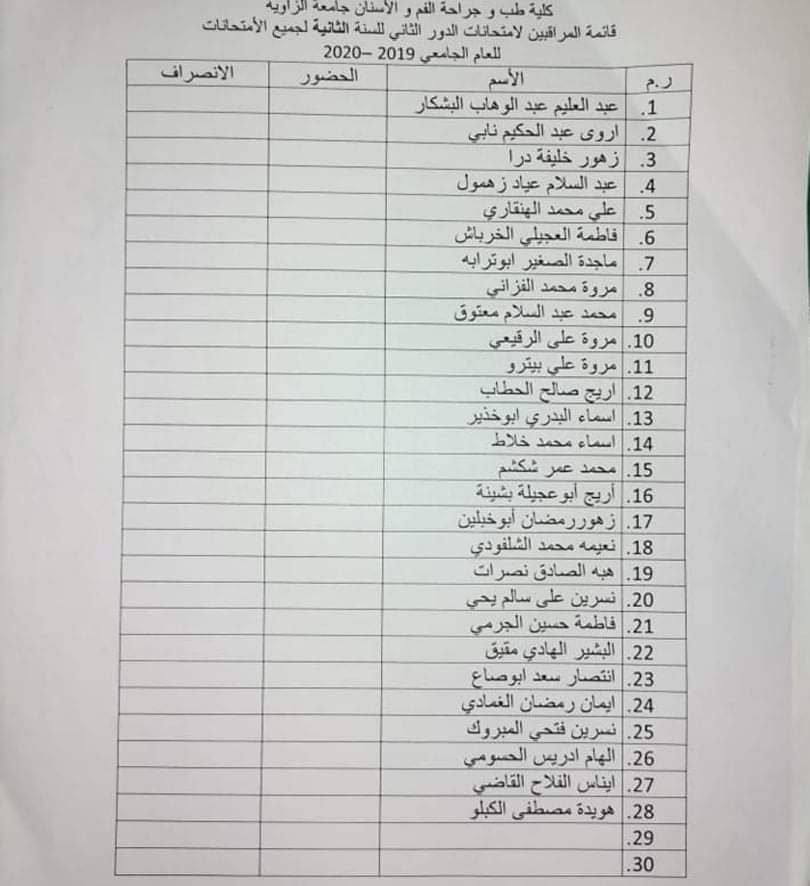 كلية طب و جراحة الفم و الأسنان جامعة الزاوية
قائمة المراقبين لامتحانات الدور الثاني للسنة الثانية لجميع الأمتحانات
للعام الجامعي 2019 –2020
ر.م الأسم الحضور الانصراف
1. عبد العليم عبد الوهاب البشكار
2. اروى عبد الحكيم نابي
3. زهور خليفة درا
4. عبد السلام عياد زهمول
5. علي محمد الهنقاري
6. فاطمة العجيلي الخرباش
7. ماجدة الصغير ابوترابه
8. مروة محمد الفزاني
9. محمد عبد السلام معتوق
10. مروة على الرقيعي
11. مروة علي بيترو
12. اريج صالح الحطاب
13. اسماء البدري ابوخذير
14. اسماء محمد خلاط
15. محمد عمر شكشم
16. أريج أبوعجيلة بشينة
17. زهوررمضان أبوخبلين
18. نعيمه محمد الشلفودي
19. هبه الصادق نصرات
20. نسرين على سالم يحي
21. فاطمة حسين الجرمي
22. البشير الهادي مقيق
23. انتصار سعد ابوصاع
24. ايمان رمضان الغمادي
25. نسرين فتحي المبروك
26. الهام ادريس الحسومي
27. ايناس الفلاح القاضي
28. هويدة مصطفى الكبلو
29.
30.